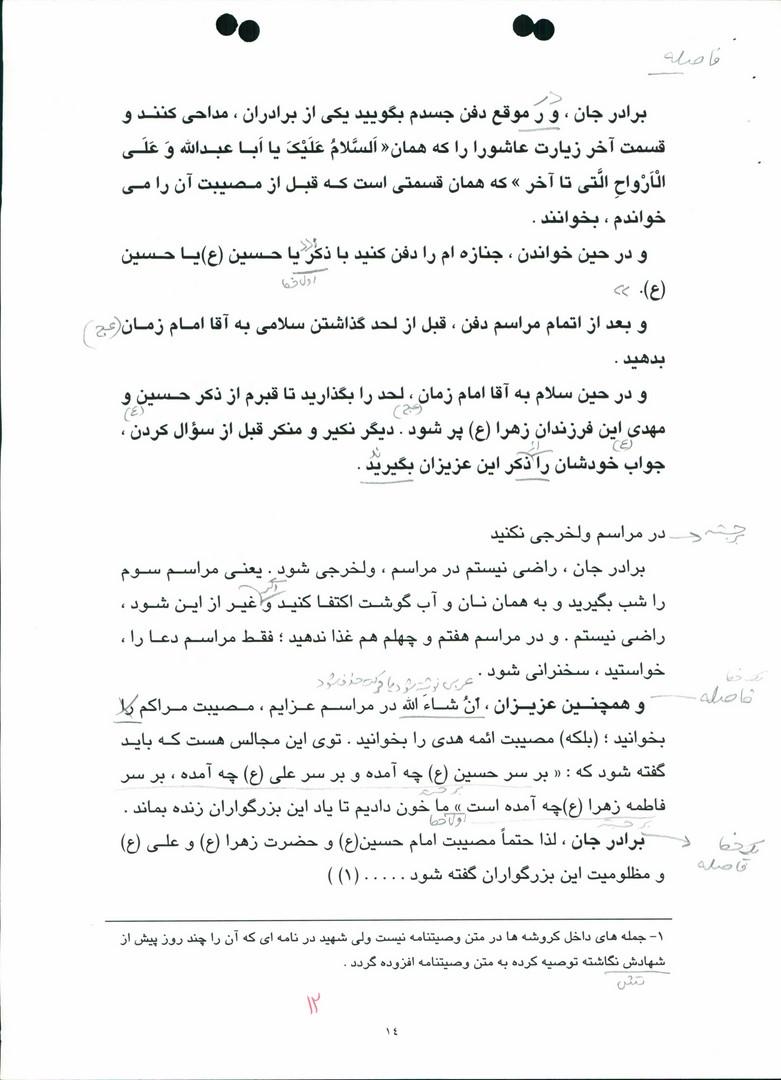 فاصله
برادر جان ، و ر موقع دفن جسدم بگویید یکی از برادران ، مداحی کنند و
در
قسمت آخر زیارت عاشورا را که همان« اَلسَّلامُ عَلَیْکَ یا اَبا عبدالله وَ عَلَی
الْاَرْواحِ الَّتی تا آخر » که همان قسمتی است که قبل از مصیبت آن را می
خواندم ، بخوانند .
و در حین خواندن ، جنازه ام را دفن کنید با ذکر یا حسین (ع)یا حسین
اول خط
(ع). »
و بعد از اتمام مراسم دفن ، قبل از لحد گذاشتن سلامی به آقا امام زمان(عج)
بدهید .
و در حین سلام به آقا امام زمان ، لحد را بگذارید تا قبرم از ذکر حسین و
(عج) (ع)
مهدی این فرزندان زهرا (ع) پر شود . دیگر نکیر و منکر قبل از سؤال کردن ،
(ع) از
جواب خودشان را ذکر این عزیزان بگیرید .
ند
در مراسم ولخرجی نکنید
برجسته
برادر جان ، راضی نیستم در مراسم ، ولخرجی شود . یعنی مراسم سوم
را شب بگیرید و به همان نان و آب گوشت اکتفا کنید و غیر از این شود ،
اگر
راضی نیستم . و در مراسم هفتم و چهلم هم غذا ندهید ؛ فقط مراسم دعا را ،
خواستید ، سخنرانی شود .
عربی نوشته شود یا حرکت حذف شود
یک خط
فاصله
و همچنین عزیزان ، اَنْ شاءَ الله در مراسم عزایم ، مصیبت مراکم را
بخوانید ؛ (بلکه) مصیبت ائمه هدی را بخوانید . توی این مجالس هست که باید
گفته شود که : « بر سر حسین (ع) چه آمده و بر سر علی (ع) چه آمده ، بر سر
برجسته
فاطمه زهرا (ع)چه آمده است » ما خون دادیم تا یاد این بزرگواران زنده بماند .
اول خط
برجسته
برادر جان ، لذا حتماً مصیبت امام حسین(ع) و حضرت زهرا (ع) و علی (ع)
یک خط
فاصله
و مظلومیت این بزرگواران گفته شود ..... (۱) )
۱- جمله های داخل کروشه ها در متن وصیتنامه نیست ولی شهید در نامه ای که آن را چند روز پیش از
شهادش نگاشته توصیه کرده به متن وصیتنامه افزوده گردد .
تش
۱۲
۱٤